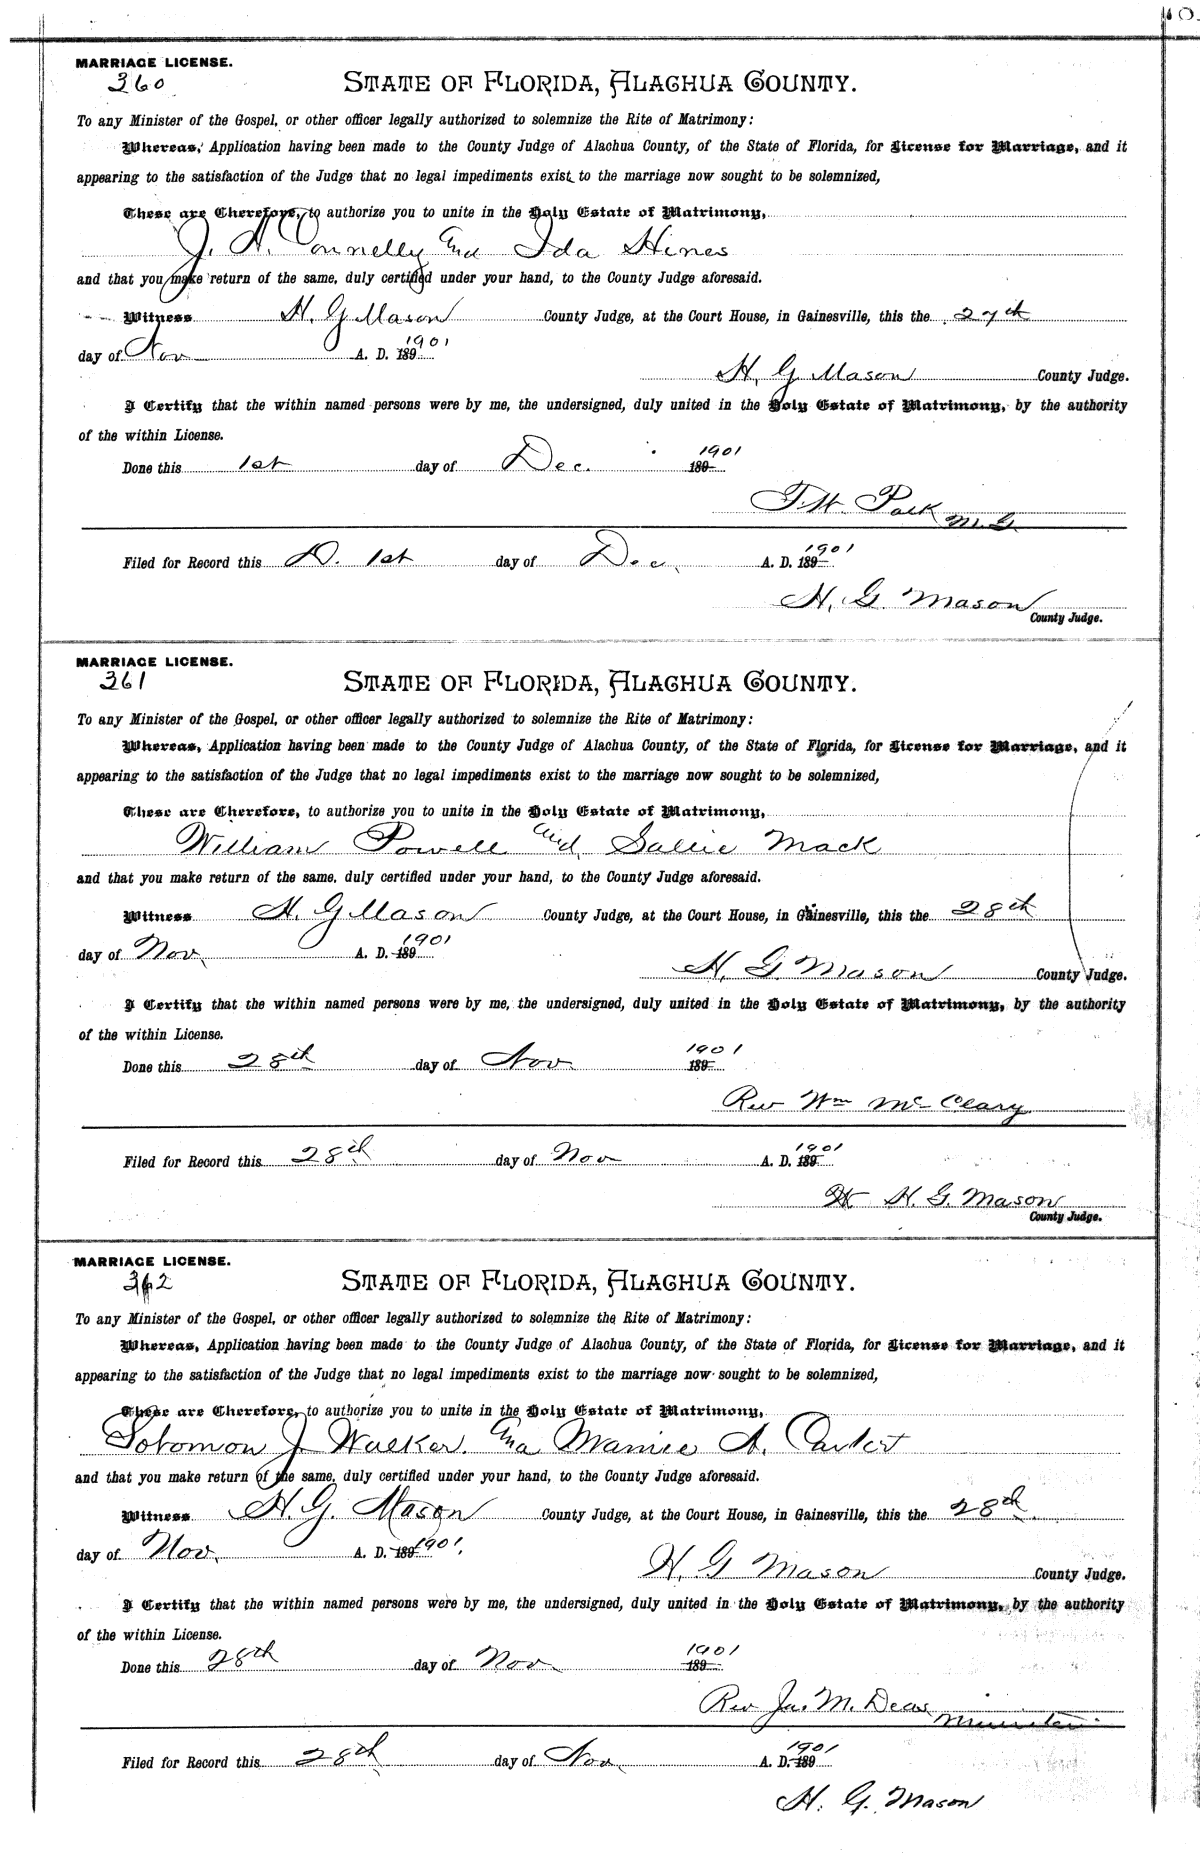 MARRIAGE LICENSE.
360
STATE OF FLORIDA, ALACHUA COUNTY.
To any Minister of the Gospel, or other officer legally authorized to solemnize the Rite of Matrimony:
Whereas, Application having been made to the County Judge of Alachua County, of the State of Florida, for License for Marriage, and it
appearing to the satisfaction of the Judge that no legal impediments exist to the marriage now sought to be solemnized,
These are Therefore, to authorize you to unite in the Holy Estate of Matrimony,
J. H. Connelly and Ida Hines
and that you make return of the same, duly certified under your hand, to the County Judge aforesaid.
Witness H. G Mason County Judge, at the Court House, in Gainesville, this the 27th
day of Nov A. D. 189 1901
H. G Mason County Judge.
I Certify that the within named persons were by me, the undersigned, duly united in the Holy Estate of Matrimony, by the authority
of the within License.
Done this 1st day of Dec. 189 1901
M. G.
Filed for Record this D. 1st day of Dec. A. D. 189 1901
H. G. Mason
County Judge.
MARRIAGE LICENSE.
361
STATE OF FLORIDA, ALACHUA COUNTY.
To any Minister of the Gospel, or other officer legally authorized to solemnize the Rite of Matrimony:
Whereas, Application having been made to the County Judge of Alachua County, of the State of Florida, for License for Marriage, and it
appearing to the satisfaction of the Judge that no legal impediments exist to the marriage now sought to be solemnized,
These are Therefore, to authorize you to unite in the Holy Estate of Matrimony,
William Powell and Sallie Mack
and that you make return of the same, duly certified under your hand, to the County Judge aforesaid.
Witness H. G Mason County Judge, at the Court House, in Gainesville, this the 28th
day of Nov. A. D. 189 1901
H. G Mason County Judge.
I Certify that the within named persons were by me, the undersigned, duly united in the Holy Estate of Matrimony, by the authority
of the within License.
Done this 28th day of Nov 189 1901
Rev Wm McCleary
Filed for Record this 28th day of Nov A. D. 189 1901
H. G. Mason
County Judge.
MARRIAGE LICENSE.
362
STATE OF FLORIDA, ALACHUA COUNTY.
To any Minister of the Gospel, or other officer legally authorized to solemnize the Rite of Matrimony:
Whereas, Application having been made to the County Judge of Alachua County, of the State of Florida, for License for Marriage, and it
appearing to the satisfaction of the Judge that no legal impediments exist to the marriage now sought to be solemnized,
These are Therefore, to authorize you to unite in the Holy Estate of Matrimony,
Solomon J Walker. and Mamie A.
and that you make return of the same, duly certified under your hand, to the County Judge aforesaid.
Witness H. G. Mason County Judge, at the Court House, in Gainesville, this the 28th
day of Nov. A. D. 189 1901.
H. G Mason County Judge.
I Certify that the within named persons were by me, the undersigned, duly united in the Holy Estate of Matrimony, by the authority
of the within License.
Done this 28th day of Nov 189 1901
Rev Jas. M. Deas Minister
Filed for Record this 28th day of Nov A. D. 189 1901
H. G. Mason